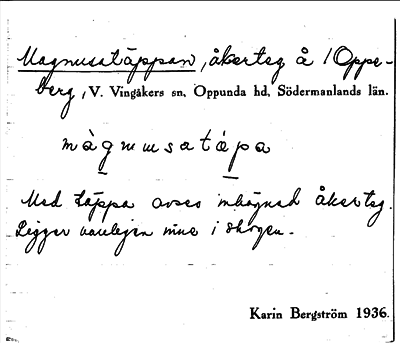 Magnusatäppan, åkerteg å /Oppe-
berg, V. Vingåkers sn, Oppunda hd, Södermanlands län.
màgnusatápa
Med täppa avses inhägnad åkerteg.
Ligger vanligen inne i skogen.
Karin Bergström 1936.